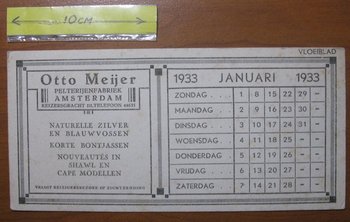 10CM
VLOEIBLAD
Otto Meijer
PELTERIJENFABRIEK
AMSTERDAM
KEIZERSGRACHT TELEFOON
NATURELLE ZILVER
EN BLAUWVOSSEN
KORTE BONTJASSEN
NOUVEAUTÉS IN
SHAWL EN
CAPE MODELLEN
VRAAGT REIZIGERSBEZOEK OF ZICHTZENDING
1933 JANUARI 1933
ZONDAG . . . 1 8 15 22 29 –
MAANDAG . . 2 9 16 23 30 –
DINSDAG . . . 3 10 17 24 31 –
WOENSDAG . 4 11 18 25 – –
DONDERDAG . 5 12 19 26 – –
VRIJDAG . . . 6 13 20 27 – –
ZATERDAG . . 7 14 21 28 – –